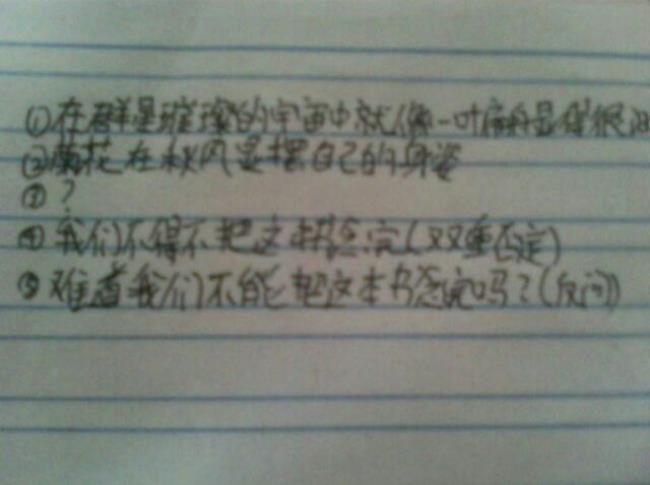 ①在群星璀璨的宇宙中就像一叶扁舟显得很
②菊花在秋风显摆自己的身姿
③?
④我们不得不把这本书念完(双重否定)
⑤难道我们不能把这本书念完吗?(反问)